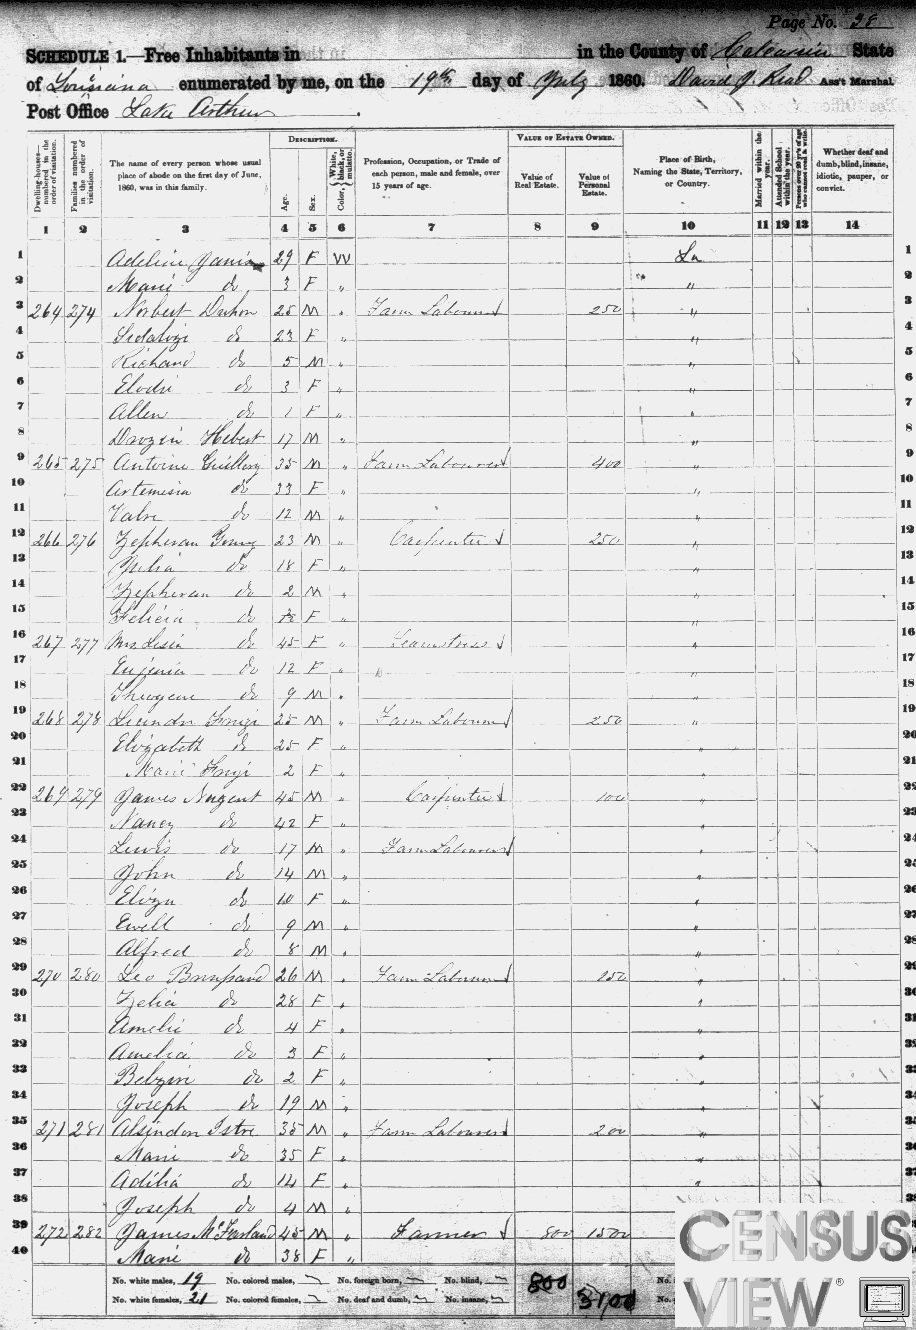 Page No. 38
SCHEDULE 1.—Free Inhabitants in in the County of Calcasieu State
of Louisiana enumerated by me, on the 19th day of July 1860. David J. Read Ass't Marshal.
Post Office Lake Arthur
Dwelling-houses—numbered in the order of visitation.
Families numbered in the order of visitation.
The name of every person whose usual place of abode on the first day of June, 1860, was in this family.
DESCRIPTION.
Age.
Sex.
Color, White, black, or mulatto.
Profession, Occupation, or Trade of each person, male and female, over 15 years of age.
VALUE OF ESTATE OWNED.
Value of Real Estate.
Value of Personal Estate.
Place of Birth, Naming the State, Territory, or Country.
Married within the year.
Attended School within the year.
Persons over 20 y'rs of age who cannot read & write.
Whether deaf and dumb, blind, insane, idiotic, pauper, or convict.
1 2 3 4 5 6 7 8 9 10 11 12 13 14
1 Adeline 29 F W La 1
2 Marie do 3 F " " 2
3 264 274 Norbert Duhon 25 M " Farm Labourer 250 " 3
4 do 23 F " " 4
5 Richard do 5 M " " 5
6 Elodie do 3 F " " 6
7 Allen do 1 F " " 7
8 Drozin Hebert 17 M " " 8
9 265 275 Antoine Guillory 35 M " Farm Labourer 400 " 9
10 Artemisia do 33 F " " 10
11 Valre do 12 M " " 11
12 266 276 Zepheran Young 23 M " Carpenter 250 " 12
13 Julia do 18 F " " 13
14 Zepheran do 2 M " " 14
15 Felicia do F " " 15
16 267 277 Mrs Lesia do 45 F " Seamstress " 16
17 Eugenia do 12 F " " 17
18 Theogene do 9 M " " 18
19 268 278 Leandre 25 M " Farm Labourer 250 " 19
20 Elizabeth do 25 F " " 20
21 Marie 2 F " " 21
22 269 279 James Nugent 45 M " Carpenter 100 " 22
23 Nancy do 42 F " " 23
24 Lewis do 17 M " Farm Labourer " 24
25 John do 14 M " " 25
26 Eliza do 10 F " " 26
27 Ewell do 9 M " " 27
28 Alfred do 8 M " " 28
29 270 280 Leo 26 M " Farm Labourer 150 " 29
30 Zelia do 28 F " " 30
31 Amelie do 4 F " " 31
32 Amelia do 3 F " " 32
33 do 2 F " " 33
34 Joseph do 19 M " " 34
35 271 281 Alsindon Istre 35 M " Farm Labourer 200 " 35
36 Marie do 35 F " " 36
37 Adilia do 14 F " " 37
38 Joseph do 4 M " 38
39 272 282 James McFarland 45 M " Farmer 800 1500
40 Marie do 38 F "
No. white males, 19 No. colored males, No. foreign born, No. blind, 800 3100 No.
No. white females, 21 No. colored females, No. deaf and dumb, No. insane, No.
CENSUS
VIEW®